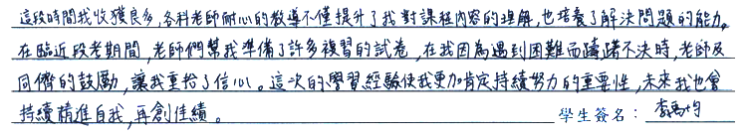 這段時間我收獲良多,各科老師耐心的教導不僅提升了我對課程內容的理解,也培養了解決問題的能力。
在臨近段考期間,老師們幫我準備了許多複習的試卷,在我因為遇到困難而躊躇不決時,老師及
同儕的鼓勵,讓我重拾了信心。這次的學習經驗使我更加肯定持續努力的重要性,未來我也會
持續精進自我,再創佳績。 學生簽名:李禹均